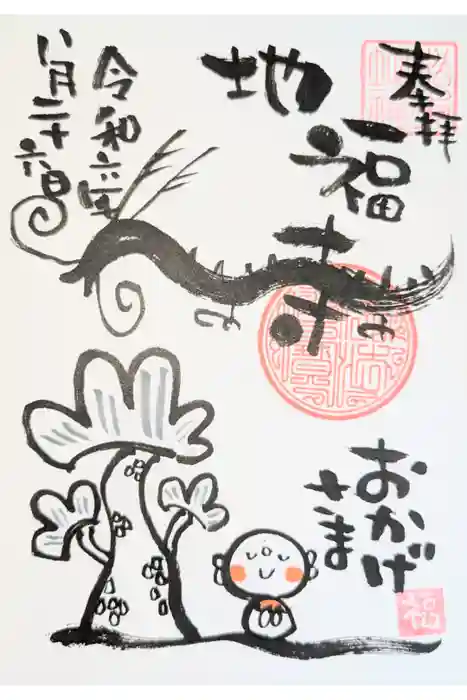 奉拝
地福寺
令和六年
八月二十六日
おかげ
さま
福